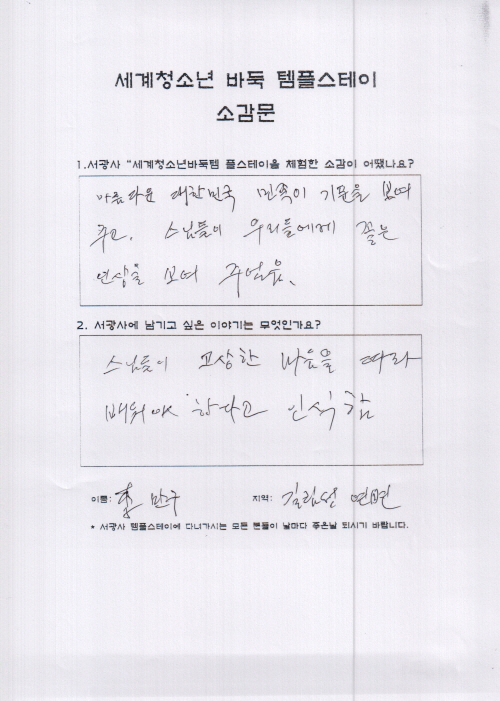 세계청소년 바둑 템플스테이
소감문
1.서광사 "세계청소년바둑템 플스테이을 체험한 소감이 어땠나요?
아름다운 대한민국 민족이 기푼을 보여
주고, 스님들이 우리들에게 좋은
인상을 보여 주었음.
2. 서광사에 남기고 싶은 이야기는 무엇인가요?
스님들이 고상한 마음을 따라
배워야 한다고 인식함
이름: 만구 지역: 길림성 연변
* 서광사 템플스테이에 다녀가시는 모든 분들이 날마다 좋은날 되시기 바랍니다.